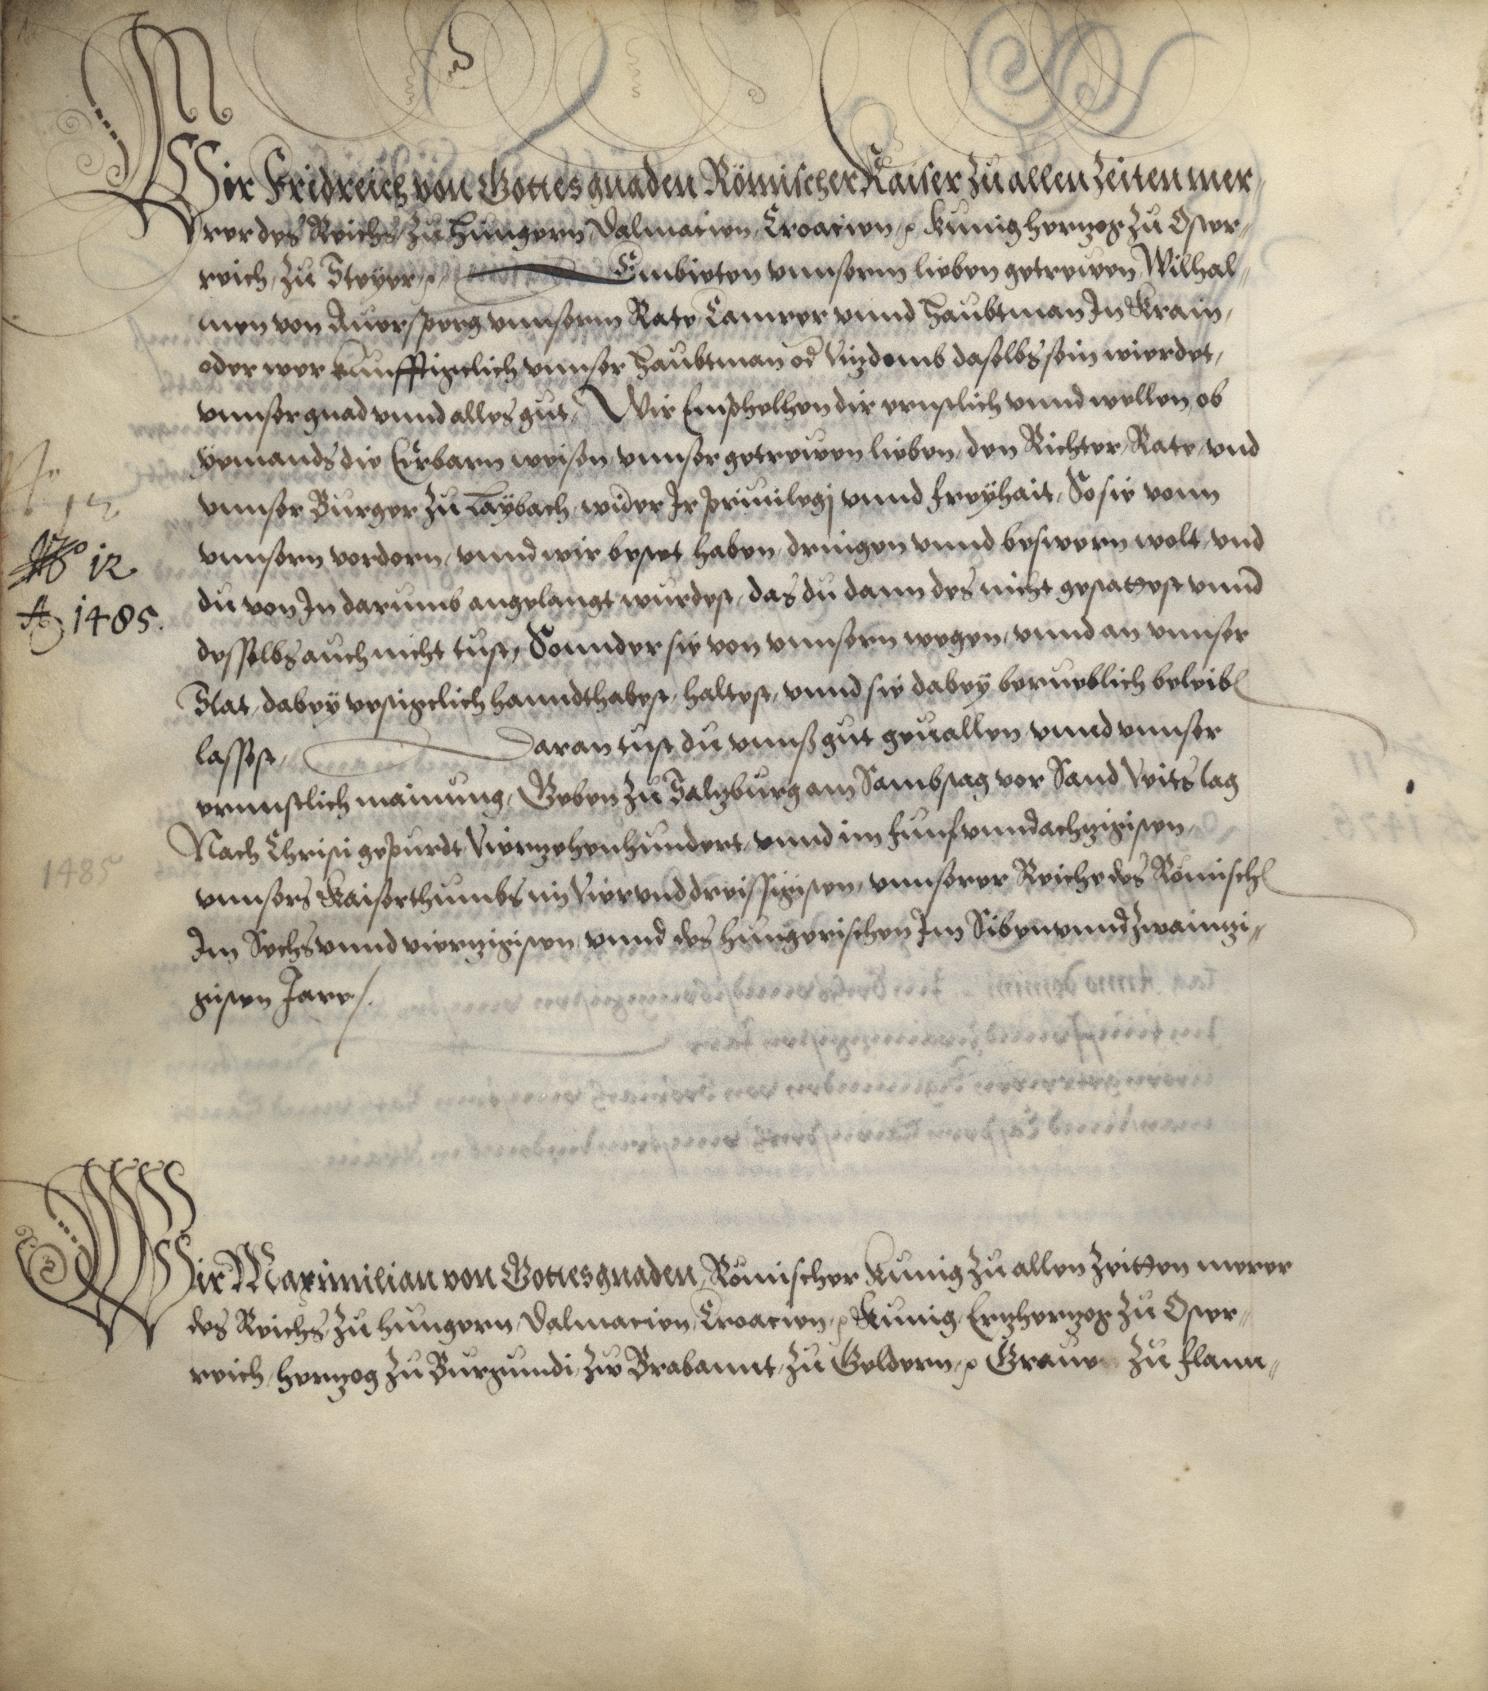 Wir Fridreich von Gottes gnaden Römischer Kaiser zu allen Zeiten mer-
rer des Reichs, zu Hungern, Dalmatien, Croatien, ꝛc Kunig Hertzog zu Oster-
reich, zu Steyer, ꝛc Embieten vnnserm lieben getrewen Wilhal-
men von Auersperg vnnserm Rate, Camrer vnnd Haubtman In Krain,
oder wer kunfftigclich vnnser Haubtman od Vizdomb daselbs sein wierdet,
vnnser gnad vnnd alles gut, Wir Emphelhen dir ernstlich vnnd wellen, ob
yemands die Erbarn weisen, vnnser getrewen lieben, den Richter, Rate, vnd
vnnser Burger zu Laybach, wider Ir priuilegj vnnd freyhait, So sie vonn
vnnsern vordern, vnnd wir bestet haben, dringen vnnd beswern wolt, vnd
du von In darumb angelangt wurdest, das du dann des nicht gestattest vnnd
desselbs auch nicht tust, Sonnder sie von vnnsern wegen, vnnd an vnnser
Stat, dabey vestigclich hanndthabest, haltest, vnnd sie dabey berueblich beleib
lassest, Daran tust du vnns gut geuallen vnnd vnnser
ernnstlich mainung, Geben zu Saltzburg am Sambstag vor Sand Veits tag
Nach Christi gepurdt Viertzehenhundert, vnnd im funfvnndachtzigisten,
vnnsers Kaiserthumbs im Vierunddreissigisten, vnnserer Reiche des Römisch
Im Sechsvnnd viertzigisten, vnnd des Hungerischen Im Sibenvnndzwaintzi-
gisten Jare
No 12
A 1485.
1485
Wir Maximilian von Gottes gnaden, Römischer Kunig zu allen Zeitten merer
des Reichs, zu Hungern, Dalmatien, Croatien, ꝛc Kunig, Ertzhertzog zu Oster-
reich, Hertzog zu Burgundi, zw Brabannt, zu Geldern, ꝛc Graue zu flann-